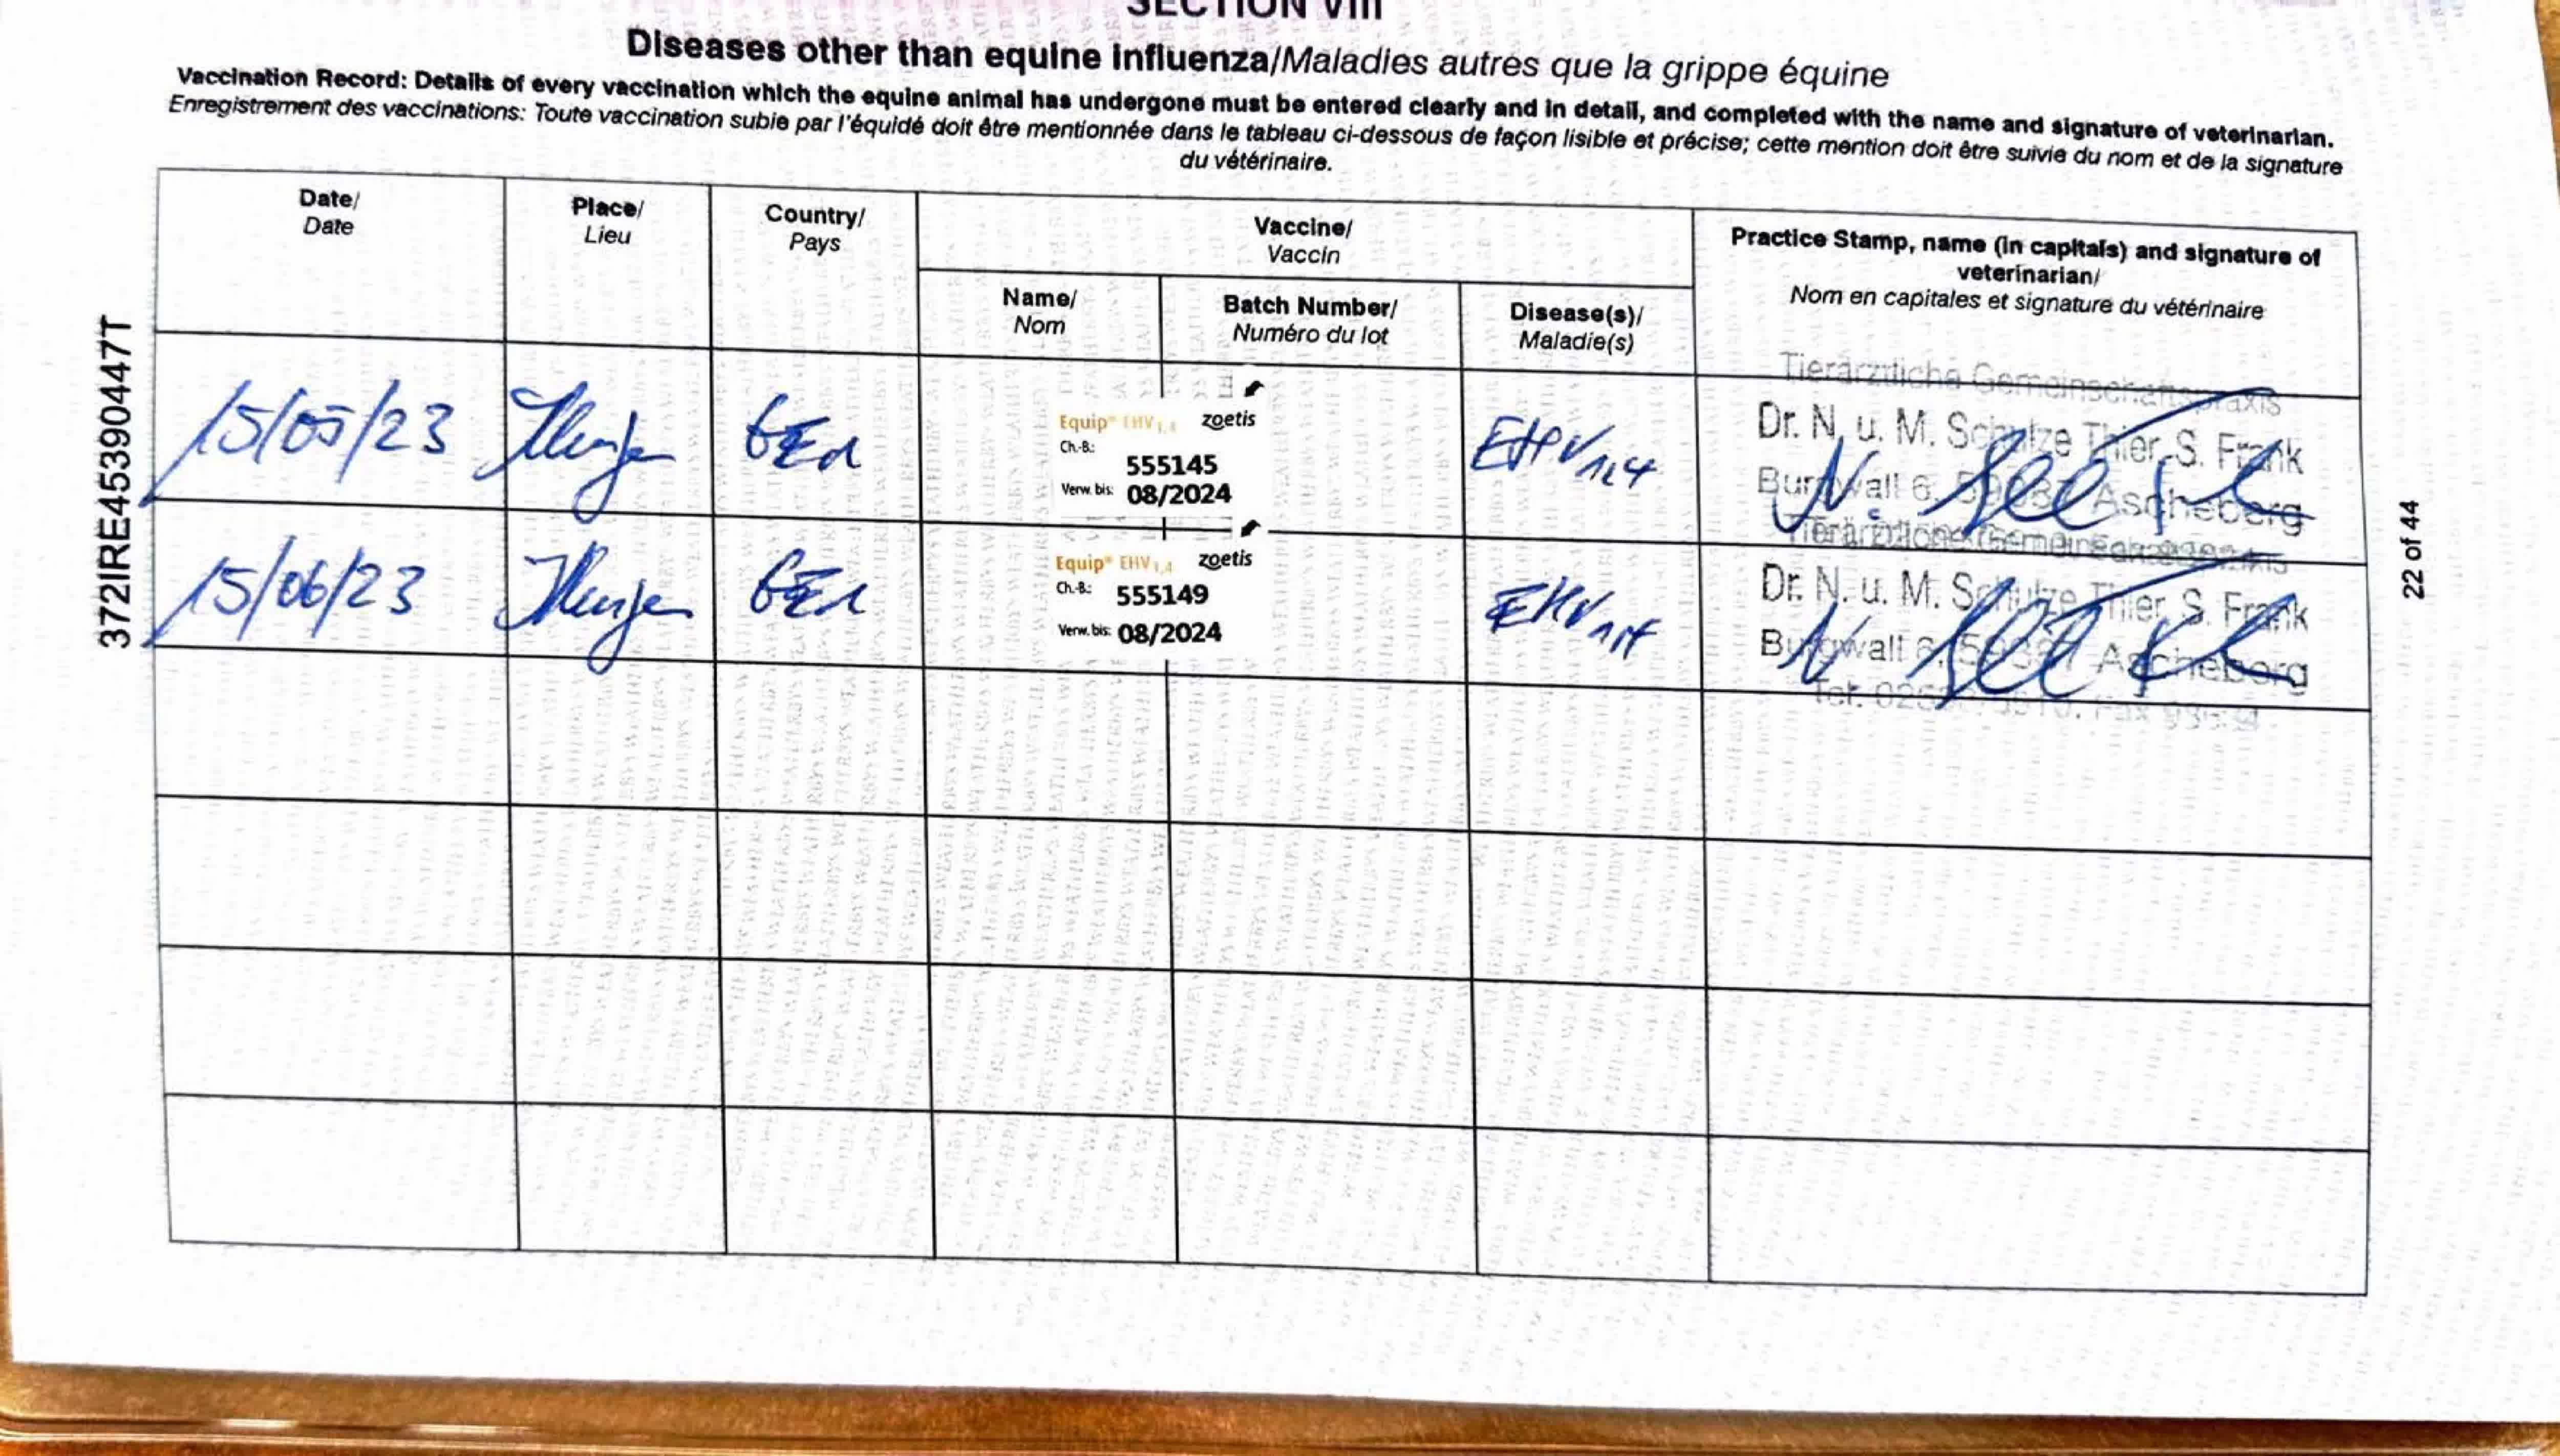 SECTION VIII
Diseases other than equine influenza/Maladies autres que la grippe équine
Vaccination Record: Details of every vaccination which the equine animal has undergone must be entered clearly and in detail, and completed with the name and signature of veterinarian.
Enregistrement des vaccinations: Toute vaccination subie par l'équidé doit être mentionnée dans le tableau ci-dessous de façon lisible et précise; cette mention doit être suivie du nom et de la signature
du vétérinaire.
Date/
Date
Place/
Lieu
Country/
Pays
Vaccine/
Vaccin
Name/
Nom
Batch Number/
Numéro du lot
Disease(s)/
Maladie(s)
Practice Stamp, name (in capitals) and signature of
veterinarian/
Nom en capitales et signature du vétérinaire
15/05/23
GER
Equip® EHV1,4 zoetis
Ch.-B.:
555145
Verw. bis: 08/2024
EHV1,4
Tierärztliche Gemeinschaftspraxis
Dr. N. u. M. Schulze Thier, S. Frank
Burgwall 6, 59387 Ascheberg
15/06/23
GER
Equip® EHV1,4 zoetis
Ch.-B.: 555149
Verw. bis: 08/2024
EHV1,4
Tierärztliche Gemeinschaftspraxis
Dr. N. u. M. Schulze Thier, S. Frank
Burgwall 6, 59387 Ascheberg
372IRE45390447T
22 of 44